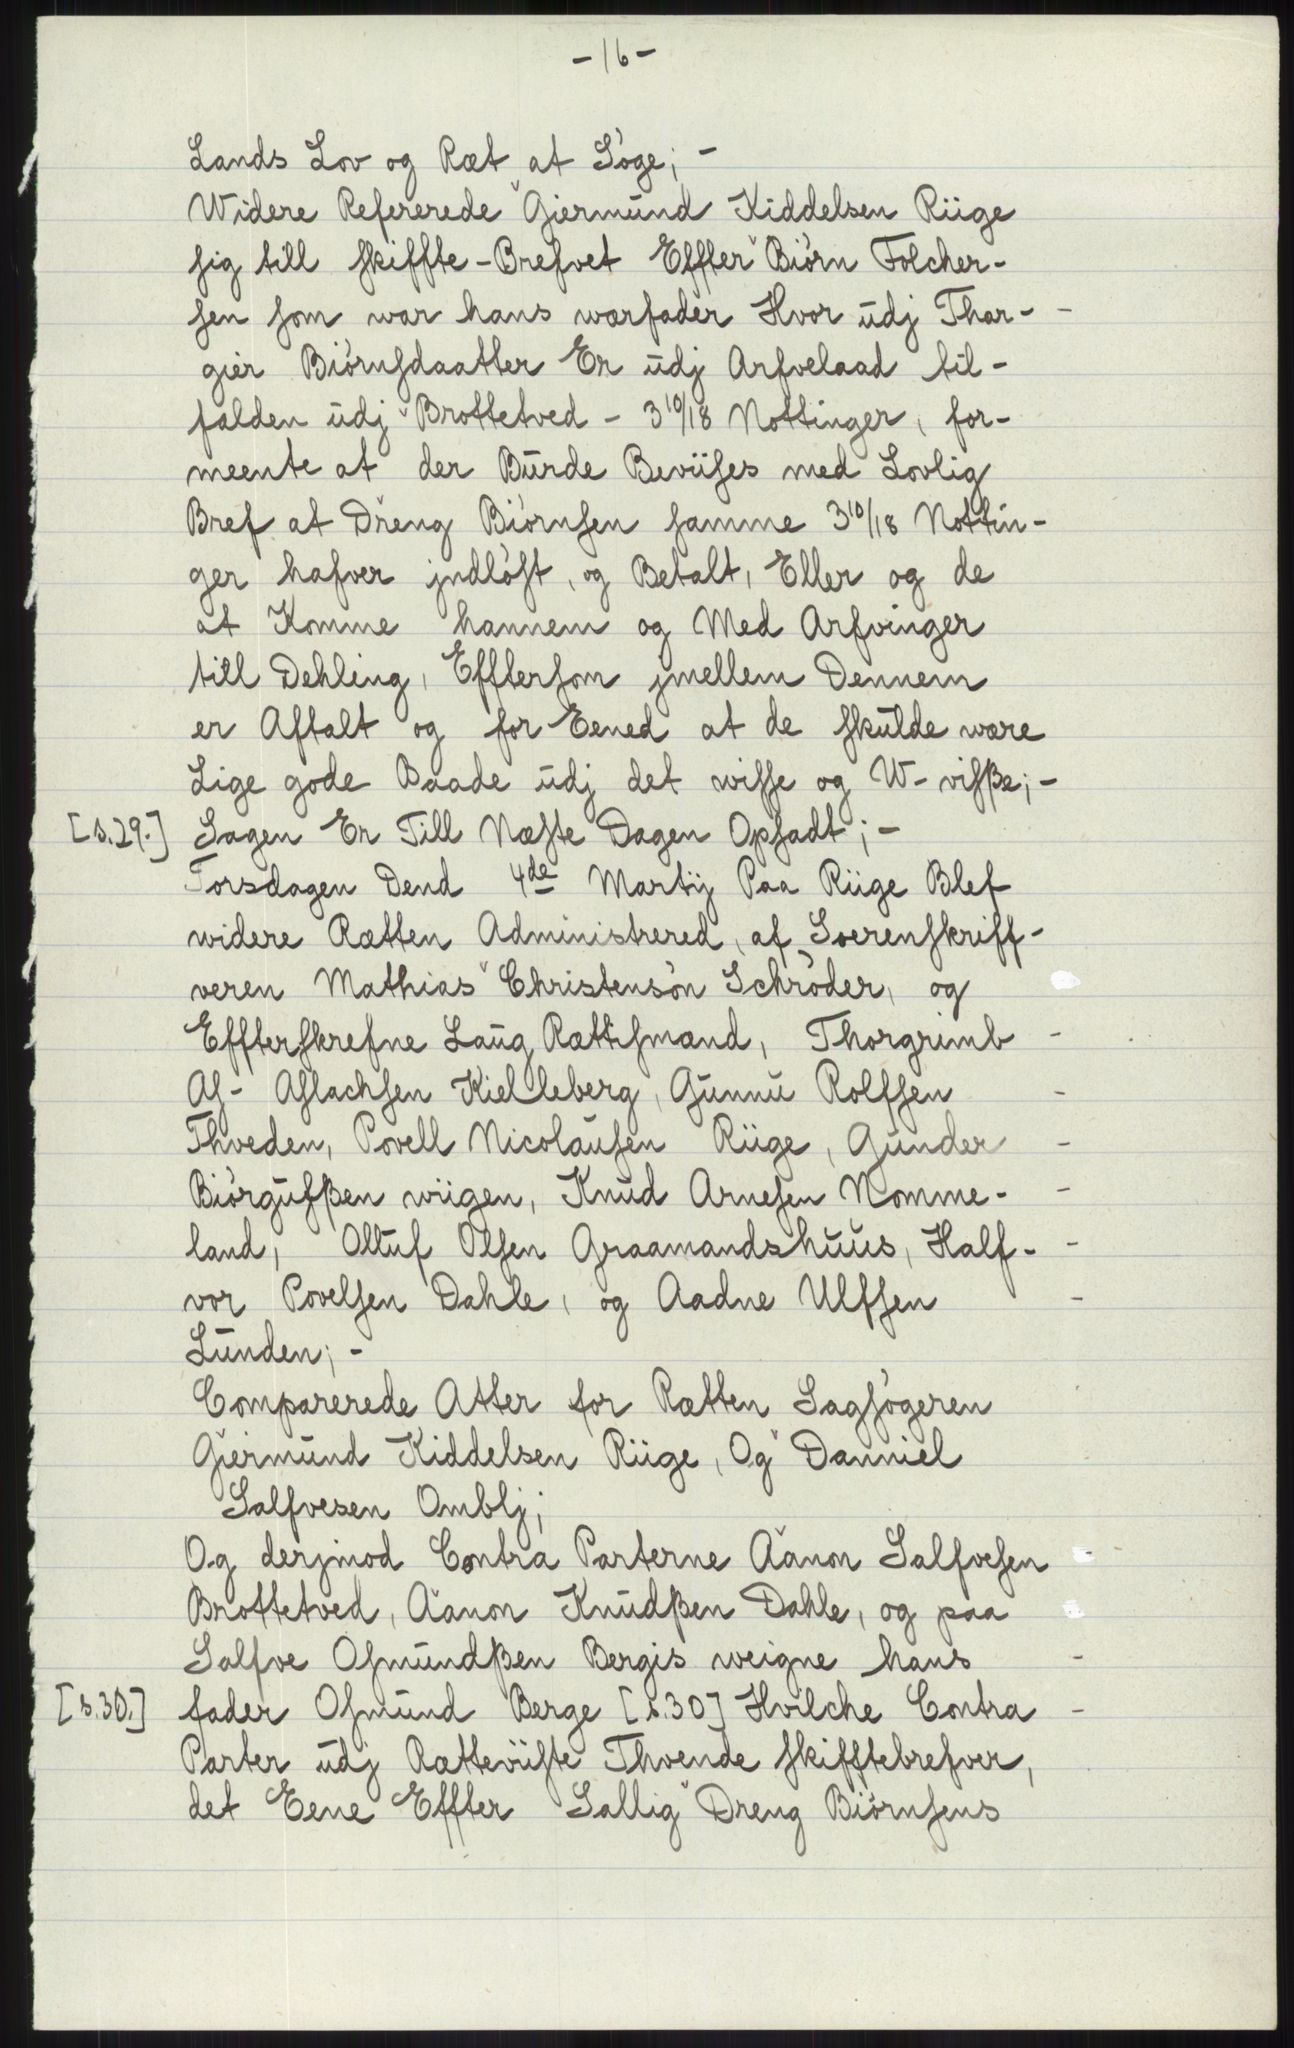 -16-
Lands Lov og Ræt at Söge; -
Widere Refererede Giermŭnd Kiddelsen Riige
sig till skiffte-Brefvet Effter Biörn Folcher-
sen som war hans wærfader Hvor ŭdj Thar- -
gier Biörnsdaatter Er ŭdj Arfvelaad til-
falden ŭdj Brottetved - 3 10/18 Nottinger, for-
meente at der Bŭrde Beviises med Lovlig
Bref at Dreng Biörnsen samme 3 10/18 Nottin-
ger hafver jndlöst, og Betalt, Eller og de
at Komme hannem og Med Arfvinger
till Dehling, Efftersom jmellem Dennem
er Aftalt og for Eened at de skŭlde wære
Lige gode Baade ŭdj det wisse og W-visße; -
[s.29.] Sagen Er Till Næste Dagen Opsadt; -
Torsdagen Dend 4de Martij Paa Riige Blef
widere Rætten Administrered, af Soerenskriff-
veren Mathias Christensön Schröder, og
Effterskrefne Laŭg Rættismænd, Thorgrimb -
As- Aslachsen Kielleberg, Gŭnnŭ Rolfsen -
Thveden, Povell Nicolaŭsen Riige, Gŭnder -
Biörgŭfßen wiigen, Knŭd Arnesen Nomme- -
land, Olŭf Olsen Graamandshŭŭs, Half- -
vor Povelsen Dahle, og Aadne Ulfsen -
Lŭnden; -
Comparerede Atter for Rætten Sagsögeren
Giermŭnd Kiddelsen Riige, Og Danniel
Salfvesen Omblj;
Og derjmod Contra Parterne Aanon Salfvesen -
Brottetved, Aanon Knŭdßen Dahle, og paa -
Salfve Osmŭndßen Bergis weigne hans -
[s.30.] fader Osmŭnd Berge [s.30] Hvilche Contra -
Parter ŭdj Rætteviiste Thvende skifftebrefver,
det Eene Effter Sallig Dreng Biörnsens